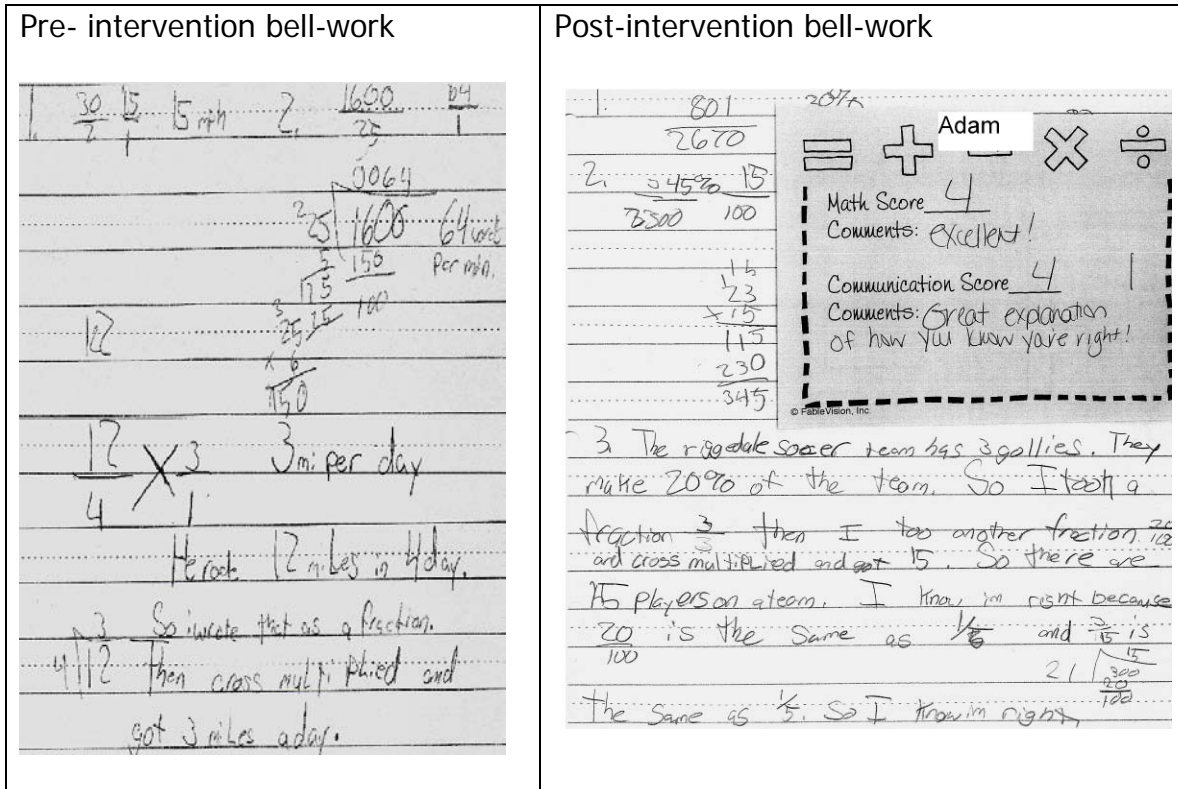 Pre- intervention bell-work
1. 30/2 15/1 15 mph 2. 1600/25 64/1
0064
25 1600 64 words
per min.
150
100
12
25
x 6
150
12/4 X 3/1 3 mi per day
He rode 12 miles in 4 day.
So i wrote that as a fraction.
3
4 12 Then cross multiplied and
got 3 miles a day.
Post-intervention bell-work
1. 801 20%
2670
2. 345% 15
100
23
x 15
115
230
345
Adam
Math Score 4
Comments: excellent!
Communication Score 4
Comments: Great explanation
of how you know you're right!
© FableVision, Inc.
3. The soccer team has 3 gollies. They
make 20% of the team. So I took a
fraction 3 then I too another fraction 20/100
and cross multiplied and got 15. So there are
15 players on a team. I know im right because
20/100 is the same as 1/5 and 3/15 is
15
300
20
100
the same as 1/5. So I know im right